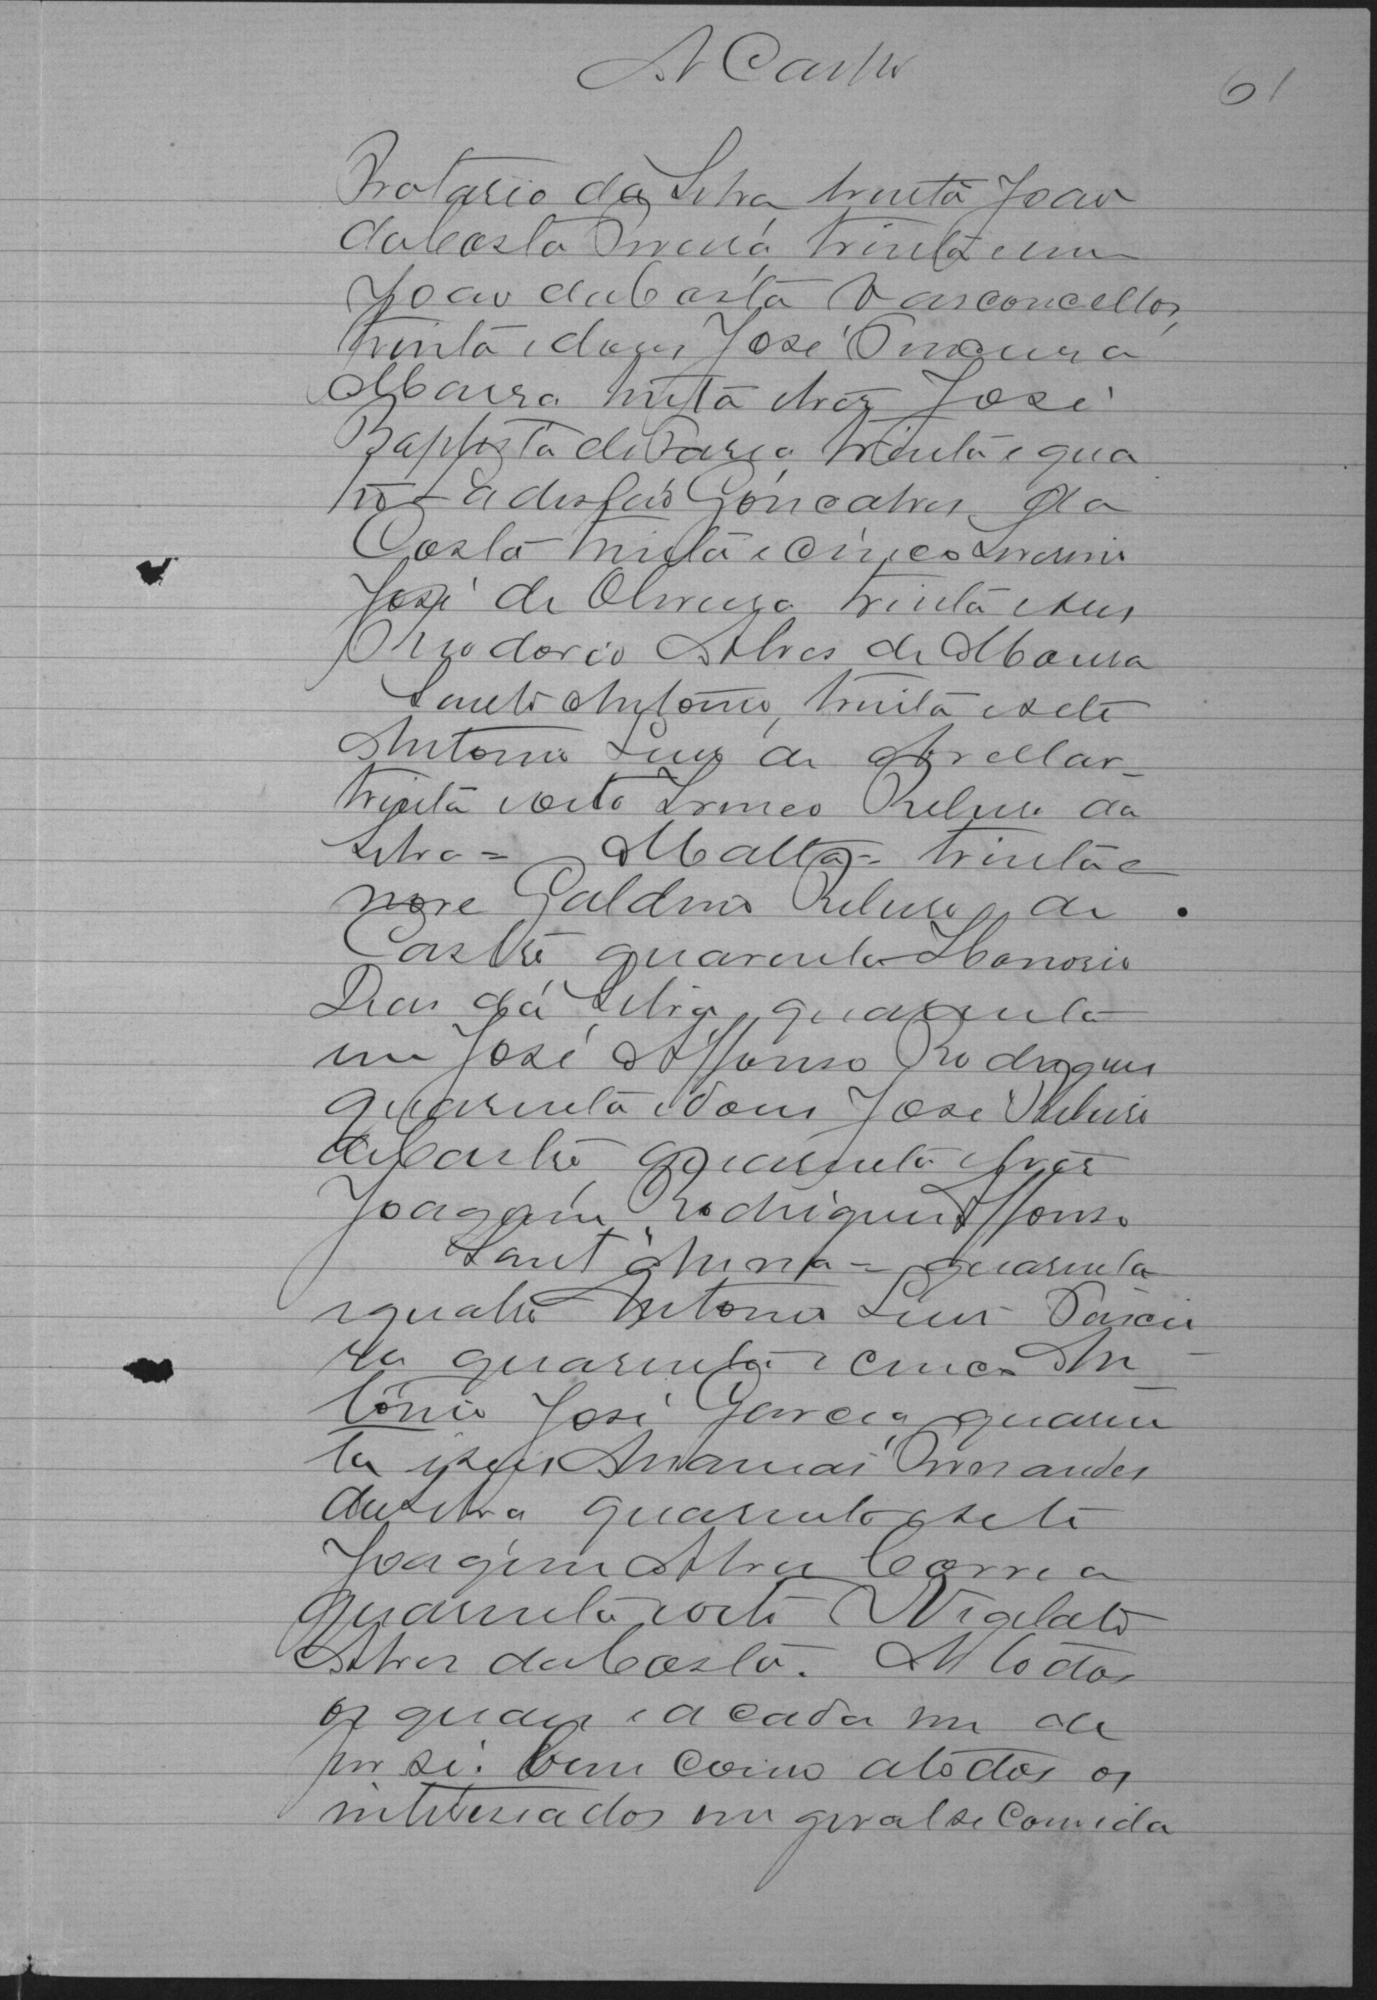 A Castro
61
Protasio da Silva trinta João
da Costa trinta e um
João da Costa Vasconcellos,
trinta e dous José
Moura trinta e tres José
Baptista de Faria trinta e qua
tro Gonçalves da
Costa trinta e cinco
José de Oliveira trinta e seis
Theodorio Alves de Moura
Santo Antonio, trinta e sete
Antonio Luis de Avellar
trinta e oito Irineo Ribeiro da
Silva = Matta = trinta e
nove Galdino Ribeiro de
Castro quarenta Honorio
Dias da Silva, quarenta
um José Affonso Rodrigues
quarenta e dous José Ribeiro
de Castro quarenta e tres
Joaquim Rodrigues Affonso
Sant'Anna = quarenta
e quatro Antonio Luis
ra quarenta e cinco An
tonio José Garcia quaren
ta e seis Ananias Fernandes
da Silva quarenta e sete
Joaquim Alves Correa
quarenta e oito Vigilato
Alves da Costa. A todos
os quaes e a cada um de
per si. bem como a todos os
interessados em geral se convida